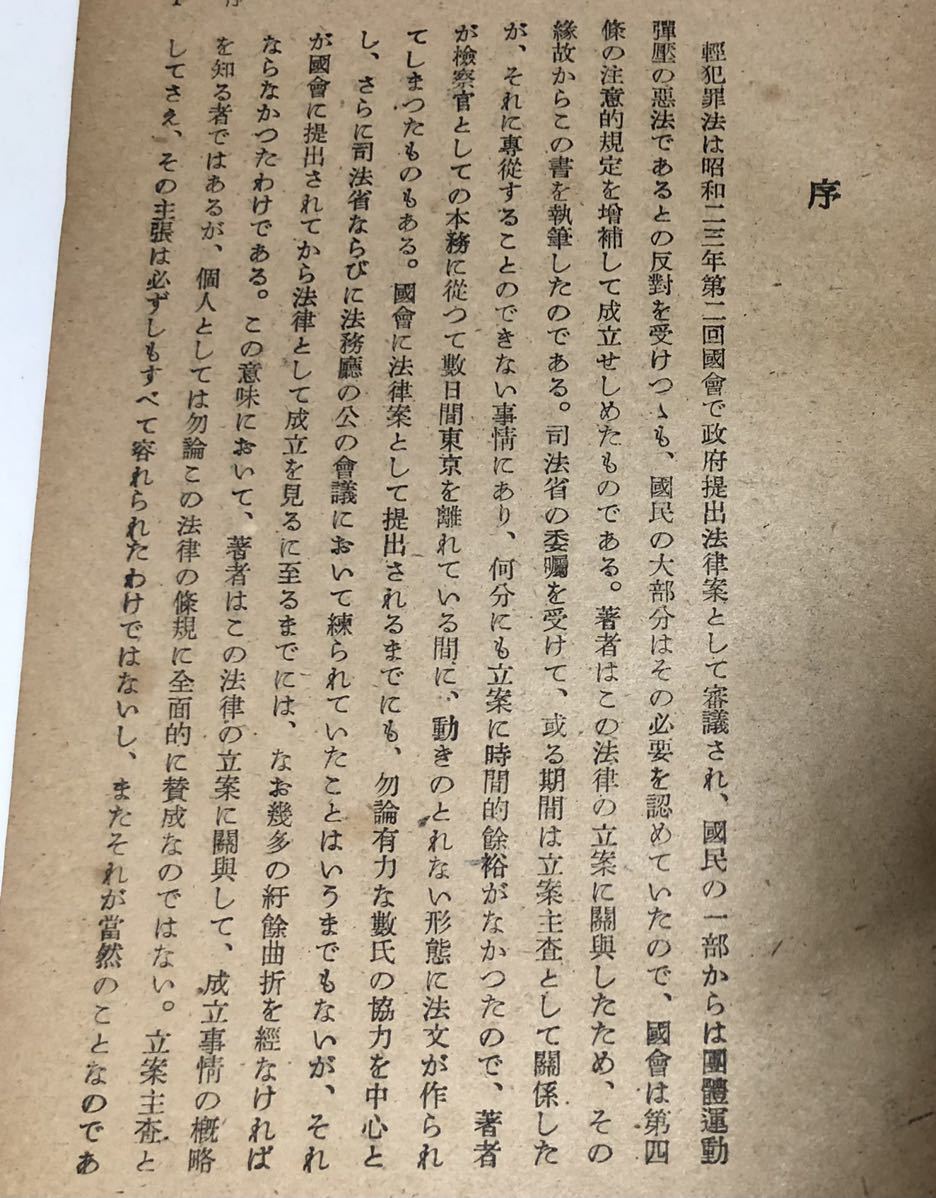 序
序
輕犯罪法は昭和二三年第二回國會で政府提出法律案として審議され、國民の一部からは團體運動
彈壓の惡法であるとの反對を受けつゝも、國民の大部分はその必要を認めていたので、國會は第四
條の注意的規定を增補して成立せしめたものである。著者はこの法律の立案に關與したため、その
緣故からこの書を執筆したのである。司法省の委囑を受けて、或る期間は立案主査として關係した
が、それに專從することのできない事情にあり、何分にも立案に時間的餘裕がなかつたので、著者
が檢察官としての本務に從つて數日間東京を離れている間に、動きのとれない形態に法文が作られ
てしまつたものもある。國會に法律案として提出されるまでにも、勿論有力な數氏の協力を中心と
し、さらに司法省ならびに法務廳の公の會議において練られていたことはいうまでもないが、それ
が國會に提出されてから法律として成立を見るに至るまでには、なお幾多の紆餘曲折を經なければ
ならなかつたわけである。この意味において、著者はこの法律の立案に關與して、成立事情の槪略
を知る者ではあるが、個人としては勿論この法律の條規に全面的に賛成なのではない。立案主査と
してさえ、その主張は必ずしもすべて容れられたわけではないし、またそれが當然のことなのであ